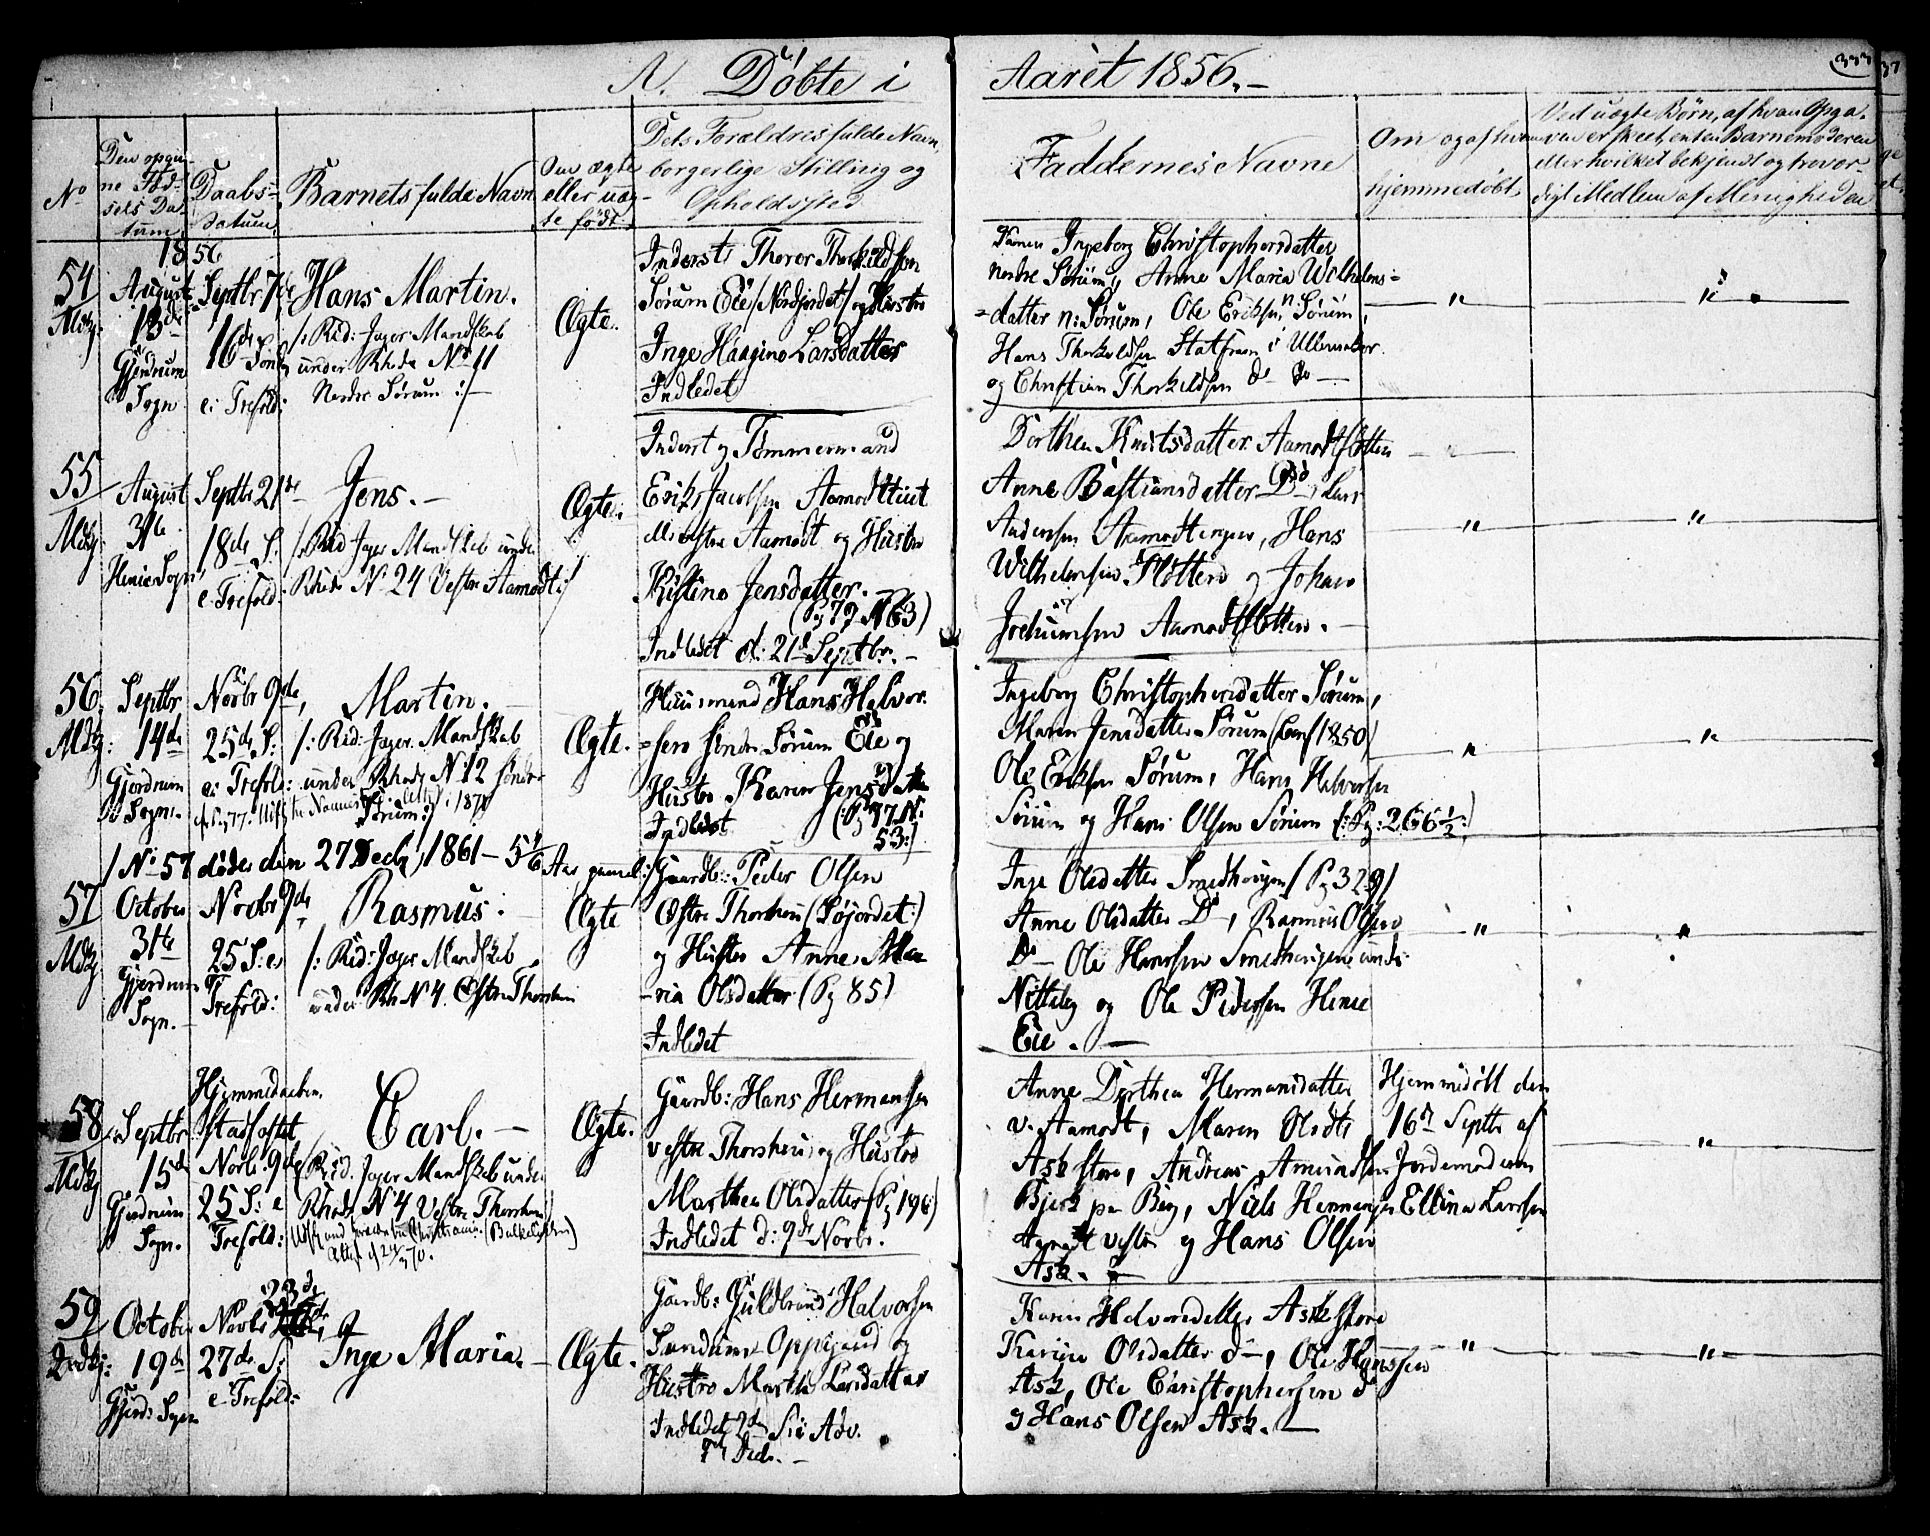 A. Döbte i Aaret 1856.-
333
No
Den opgi-
ne Föd-
sels Da-
tum.
Daabs-
datum.
Barnets fulde Navn
Om ægte
eller uæg-
te født.
Dets Forældres fulde Navn,
borgerlige Stilling og
Opholdssted
Faddernes Navne
Om og af hvem
hjemmedøbt.
Ved uægte Børn, af hvem Opga-
ven er skeet, enten Barnemoderen
eller hvilket bekjendt og trovær-
digt Medlem af Menigheden
1856
54
Mdkj:
August
13de
Gjerdrum
Sogn
Septbr 7de
16de Sönd
e: Trefold:
Hans Martin.
/: Rid: Jæger Mandskab
under Rhode No 11
Nordre Sörum :/-
Ægte.
Inderst Thorer Thorkildsen
Sörum Eie /Nordjordet/ og Hustro
Inge Haagine Larsdatter
Indledet
Ingeborg Christophersdatter
nordre Sörum, Anne Maria Wilhelms-
=datter n: Sörum, Ole Eriksen n: Sörum,
Hans Thorkildsen i Ullensaker
og Christian Thorkildsen do do -
"
"
55
Mdkj:
August
31te
Henie Sogn,
Septbr 21de
18de S:
e: Trefold:
Jens.-
/: Rid Jæger Mandskab under
Rhode No 24 Vestre Aamodt:/
Ægte.
Inderst og Tömmermand
Erik Jacobsen
Aamodt og Hustro
Kistine Jensdatter.
(Pg 79 N 63)
Indledet d: 21de Septbr.-
Dorthea Knutsdatter Aamodtslotten
Anne Bastiansdatter Do, Lars
Andersen Aamodtengen, Hans
Wilhelmsen Slotten og Johan
Jochumsen Aamodtslotten.-
"
"
56
Mdkj:
Septbr
14de
Gjerdrum
Sogn.
Novbr 9de,
25de S:
e: Trefold:
Martin.
/: Rid: Jæger Mandskab
under Rhode N 12 söndre
Sörum:/
Ægte.
Huusmand Hans Halvor-
=sen söndre Sörum Eie og
Hustro Karen Jensdatter
Indledet (:Pg 37 N:
53:)
Ingeborg Christophersdatter Sörum,
Maren Jensdatter Sörum (Conf 1850)
Ole Eriksen Sörum, Hans Halvorsen
Sörum og Hans Olsen Sörum (:Pg: 266½:)
"
"
/No 57 döde den 27 Decbr, 1861 - 5 1/6 Aar gammel:/
57
Mdkj
October
31te
Gjerdrum
Sogn.-
Novbr 9de,
25 S: e
Trefold:
Rasmus.
/: Rid: Jæger Mandskab
under Rh N 4. Östre Thorshem
Ægte
Gaardb: Peder Olsen
Östre Thorshem (Söjordet:)
og Hustro Anne Ma-
-ria Olsdatter (Pg 85)
Indledet
Inge Olsdatter Smedhougen /Pg 329/
Anne Olsdatter Do, Rasmus Olsen
Do - Ole Hanssen Smedhougen under
Nitteberg og Ole Pedersen Henie
Eie.-
"
"
58
Mdkj
Septbr
15de
Gjerdrum
Sogn.
Hjemmedaaben
stadfæstet
Novbr: 9de
25 S: e
Trefold:
Carl.-
(Rid: Jæger Mandskab under
Rhode N 4 Vestre Thorshem)
Ægte.
Gaardb: Hans Hermansen
vestre Thorshem og Hustro
Marthea Olsdatter (Pg 196)
Indledet d: 9de Novbr.
Anne Dorthea Hermansdatter
v. Aamodt, Maren Olsdtr
Ask store, Andreas Amundsen
Bjerk paa Berg, Niels Hermansen
Aamodt vestre og Hans Olsen
Ask.-
Hjemmedöbt den
16de Septbr af
Jordemoderen
Ellina Larsen
"
59
October
19de
Gjerd: Sogn
Novbr 23de
27de S:
e Trefold:
Inge Maria.-
Ægte.
Gaardb: Guldbrand Halvorsen
Sandum Oppigaard og
Hustro Marthe Larsdatter
Indledet 2den Sö: i Adv.
7de Decbr.-
Karen Halvorsdatter Ask store
Karine Olsdatter do, Ole Hanssen
Ask, Ole Christophersen do
og Hans Olsen Ask.-
"
"